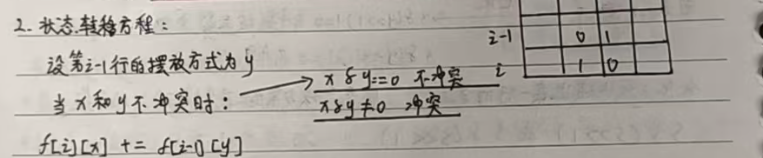 2. 状态转移方程：
设第i-1行的摆放方式为y
当x和y不冲突时： x & y==0 不冲突
x&y≠0 冲突
f[i][x] += f[i-1][y]
i-1 0 1
i 1 0